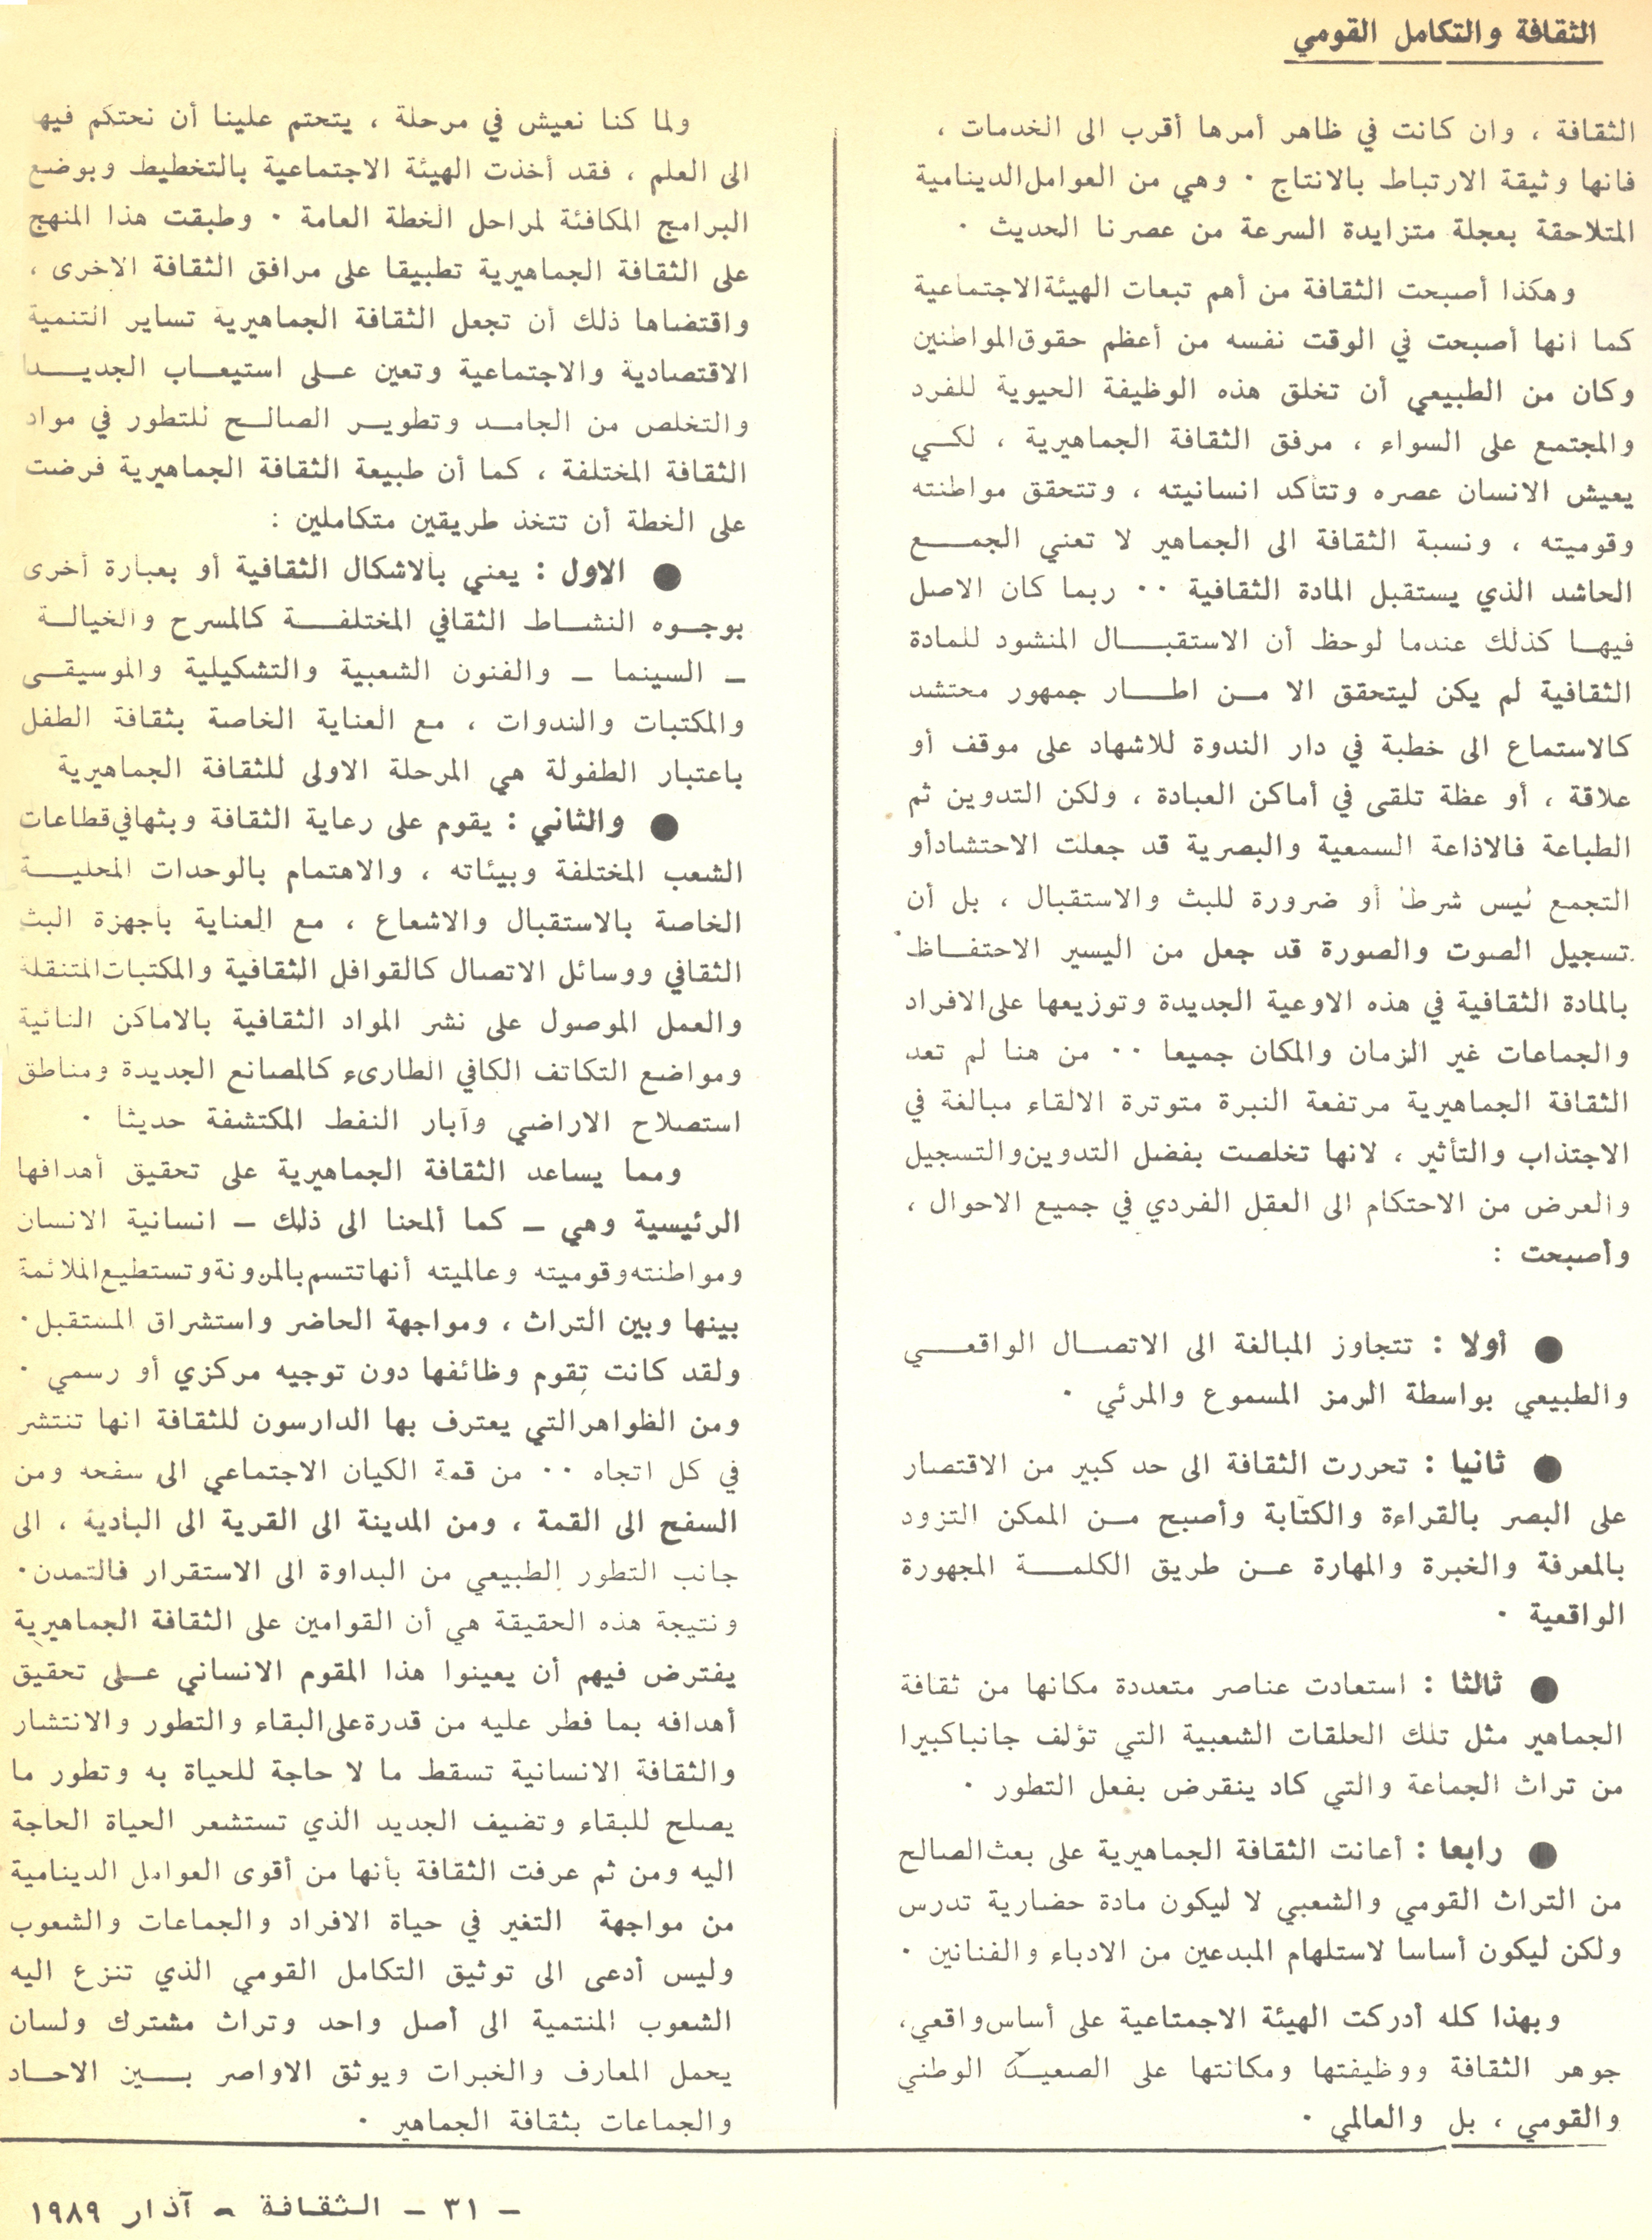 الثقافة والتكامل القومي
الثقافة ، وان كانت في ظاهر أمرها أقرب الى الخدمات ،
فانها وثيقة الارتباط بالانتاج ٠ وهي من العوامل الدينامية
المتلاحقة بعجلة متزايدة السرعة من عصرنا الحديث ٠
وهكذا أصبحت الثقافة من أهم تبعات الهيئة الاجتماعية
كما انها أصبحت في الوقت نفسه من أعظم حقوق المواطنين
وكان من الطبيعي أن تخلق هذه الوظيفة الحيوية للفرد
والمجتمع على السواء ، مرفق الثقافة الجماهيرية ، لكي
يعيش الانسان عصره وتتأكد انسانيته ، وتتحقق مواطنته
وقوميته ، ونسبة الثقافة الى الجماهير لا تعني الجمع
الحاشد الذي يستقبل المادة الثقافية ٠٠ ربما كان الاصل
فيها كذلك عندما لوحظ أن الاستقبال المنشود للمادة
الثقافية لم يكن ليتحقق الا من اطار جمهور محتشد
كالاستماع الى خطبة في دار الندوة للاشهاد على موقف أو
علاقة ، أو عظة تلقى في أماكن العبادة ، ولكن التدوين ثم
الطباعة فالاذاعة السمعية والبصرية قد جعلت الاحتشاد أو
التجمع ليس شرطا أو ضرورة للبث والاستقبال ، بل أن
تسجيل الصوت والصورة قد جعل من اليسير الاحتفاظ
بالمادة الثقافية في هذه الاوعية الجديدة وتوزيعها على الافراد
والجماعات غير الزمان والمكان جميعا ٠٠ من هنا لم تعد
الثقافة الجماهيرية مرتفعة النبرة متوترة الالقاء مبالغة في
الاجتذاب والتأثير ، لانها تخلصت بفضل التدوين والتسجيل
والعرض من الاحتكام الى العقل الفردي في جميع الاحوال ،
وأصبحت :
● أولا : تتجاوز المبالغة الى الاتصال الواقعي
والطبيعي بواسطة الرمز المسموع والمرئي ٠
● ثانيا : تحررت الثقافة الى حد كبير من الاقتصار
على البصر بالقراءة والكتابة وأصبح من الممكن التزود
بالمعرفة والخبرة والمهارة عن طريق الكلمة المجهورة
الواقعية ٠
● ثالثا : استعادت عناصر متعددة مكانها من ثقافة
الجماهير مثل تلك الحلقات الشعبية التي تؤلف جانبا كبيرا
من تراث الجماعة والتي كاد ينقرض بفعل التطور ٠
● رابعا : أعانت الثقافة الجماهيرية على بعث الصالح
من التراث القومي والشعبي لا ليكون مادة حضارية تدرس
ولكن ليكون أساسا لاستلهام المبدعين من الادباء والفنانين ٠
وبهذا كله أدركت الهيئة الاجمتاعية على أساس واقعي،
جوهر الثقافة ووظيفتها ومكانتها على الصعيد الوطني
والقومي ، بل والعالمي ٠
ولما كنا نعيش في مرحلة ، يتحتم علينا أن نحتكم فيها
الى العلم ، فقد أخذت الهيئة الاجتماعية بالتخطيط وبوضع
البرامج المكافئة لمراحل الخطة العامة ٠ وطبقت هذا المنهج
على الثقافة الجماهيرية تطبيقا على مرافق الثقافة الاخرى ،
واقتضاها ذلك أن تجعل الثقافة الجماهيرية تساير التنمية
الاقتصادية والاجتماعية وتعين على استيعاب الجديد
والتخلص من الجامد وتطوير الصالح للتطور في مواد
الثقافة المختلفة ، كما أن طبيعة الثقافة الجماهيرية فرضت
على الخطة أن تتخذ طريقين متكاملين :
● الاول : يعني بالاشكال الثقافية أو بعبارة أخرى
بوجوه النشاط الثقافي المختلفة كالمسرح والخيالة
ـ السينما ـ والفنون الشعبية والتشكيلية والموسيقى
والمكتبات والندوات ، مع العناية الخاصة بثقافة الطفل
باعتبار الطفولة هي المرحلة الاولى للثقافة الجماهيرية
● والثاني : يقوم على رعاية الثقافة وبثها في قطاعات
الشعب المختلفة وبيئاته ، والاهتمام بالوحدات المحلية
الخاصة بالاستقبال والاشعاع ، مع العناية بأجهزة البث
الثقافي ووسائل الاتصال كالقوافل الثقافية والمكتبات المتنقلة
والعمل الموصول على نشر المواد الثقافية بالاماكن النائية
ومواضع التكاتف الكافي الطارىء كالمصانع الجديدة ومناطق
استصلاح الاراضي وآبار النفط المكتشفة حديثا ٠
ومما يساعد الثقافة الجماهيرية على تحقيق أهدافها
الرئيسية وهي ـ كما ألمحنا الى ذلك ـ انسانية الانسان
ومواطنته وقوميته وعالميته أنها تتسم بالمرونة وتستطيع الملائمة
بينها وبين التراث ، ومواجهة الحاضر واستشراق المستقبل٠
ولقد كانت تقوم وظائفها دون توجيه مركزي أو رسمي ٠
ومن الظواهر التي يعترف بها الدارسون للثقافة انها تنتشر
في كل اتجاه ٠٠ من قمة الكيان الاجتماعي الى سفحه ومن
السفح الى القمة ، ومن المدينة الى القرية الى البادية ، الى
جانب التطور الطبيعي من البداوة الى الاستقرار فالتمدن٠
ونتيجة هذه الحقيقة هي أن القوامين على الثقافة الجماهيرية
يفترض فيهم أن يعينوا هذا المقوم الانساني على تحقيق
أهدافه بما فطر عليه من قدرة على البقاء والتطور والانتشار
والثقافة الانسانية تسقط ما لا حاجة للحياة به وتطور ما
يصلح للبقاء وتضيف الجديد الذي تستشعر الحياة الحاجة
اليه ومن ثم عرفت الثقافة بأنها من أقوى العوامل الدينامية
من مواجهة التغير في حياة الافراد والجماعات والشعوب
وليس أدعى الى توثيق التكامل القومي الذي تنزع اليه
الشعوب المنتمية الى أصل واحد وتراث مشترك ولسان
يحمل المعارف والخبرات ويوثق الاواصر بين الاحاد
والجماعات بثقافة الجماهير ٠
ـ ٣١ ـ الثقافة ـ آذار ١٩٨٩